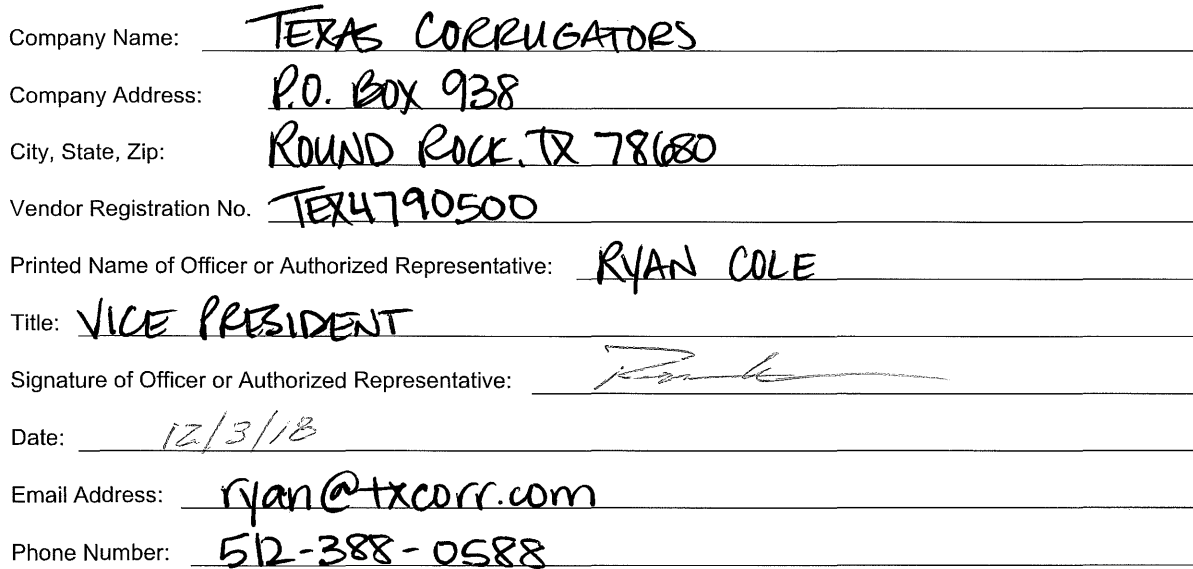 Company Name: TEXAS CORRUGATORS
Company Address: P.O. BOX 938
City, State, Zip: ROUND ROCK, TX 78680
Vendor Registration No. TEX4790500
Printed Name of Officer or Authorized Representative: RYAN COLE
Title: VICE PRESIDENT
Signature of Officer or Authorized Representative:
Date: 12/3/18
Email Address: ryan@txcorr.com
Phone Number: 512-388-0588